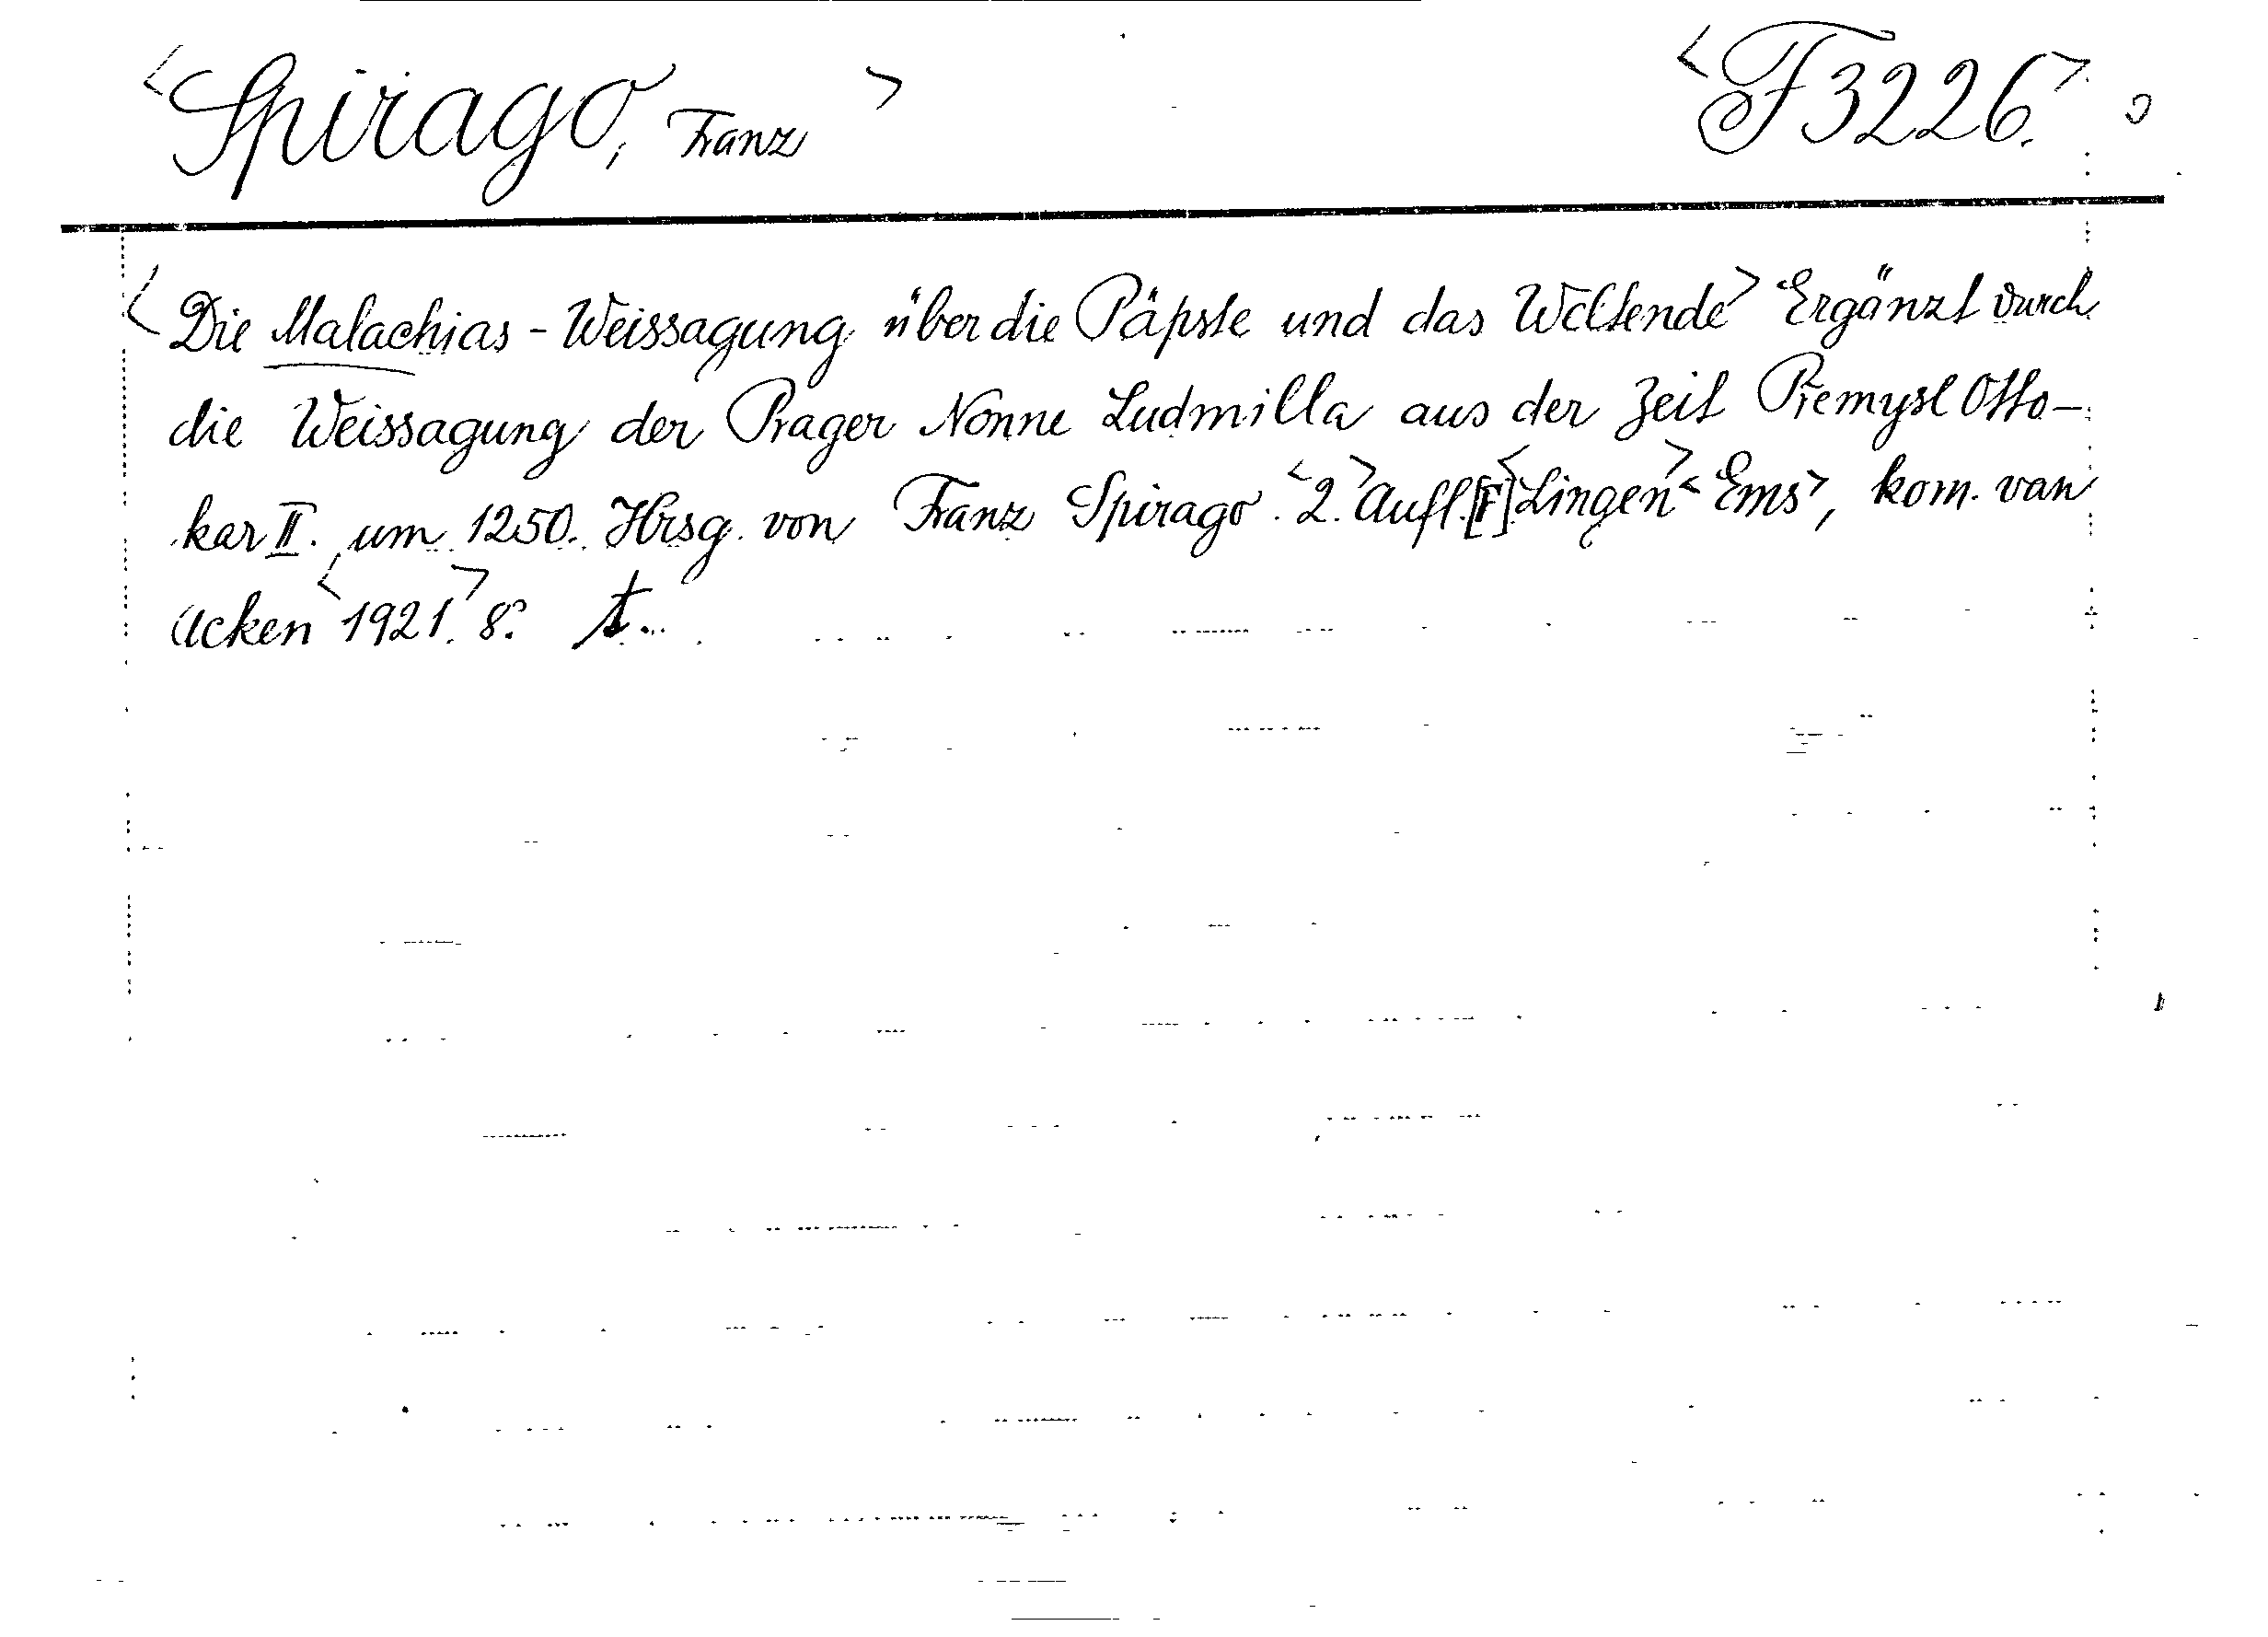 <Spirago, Franz> <F3226.>
<Die Malachias-Weissagung über die Päpste und das Weltende> Ergänzt durch
die Weissagung der Prager Nonne Ludmilla aus der Zeit Přemysl Otto-
kar II. um 1250. Hrsg. von Franz Spirago. <2.> Aufl. [F] <Lingen> <Ems>, kom. van
Acken <1921.> 8°.